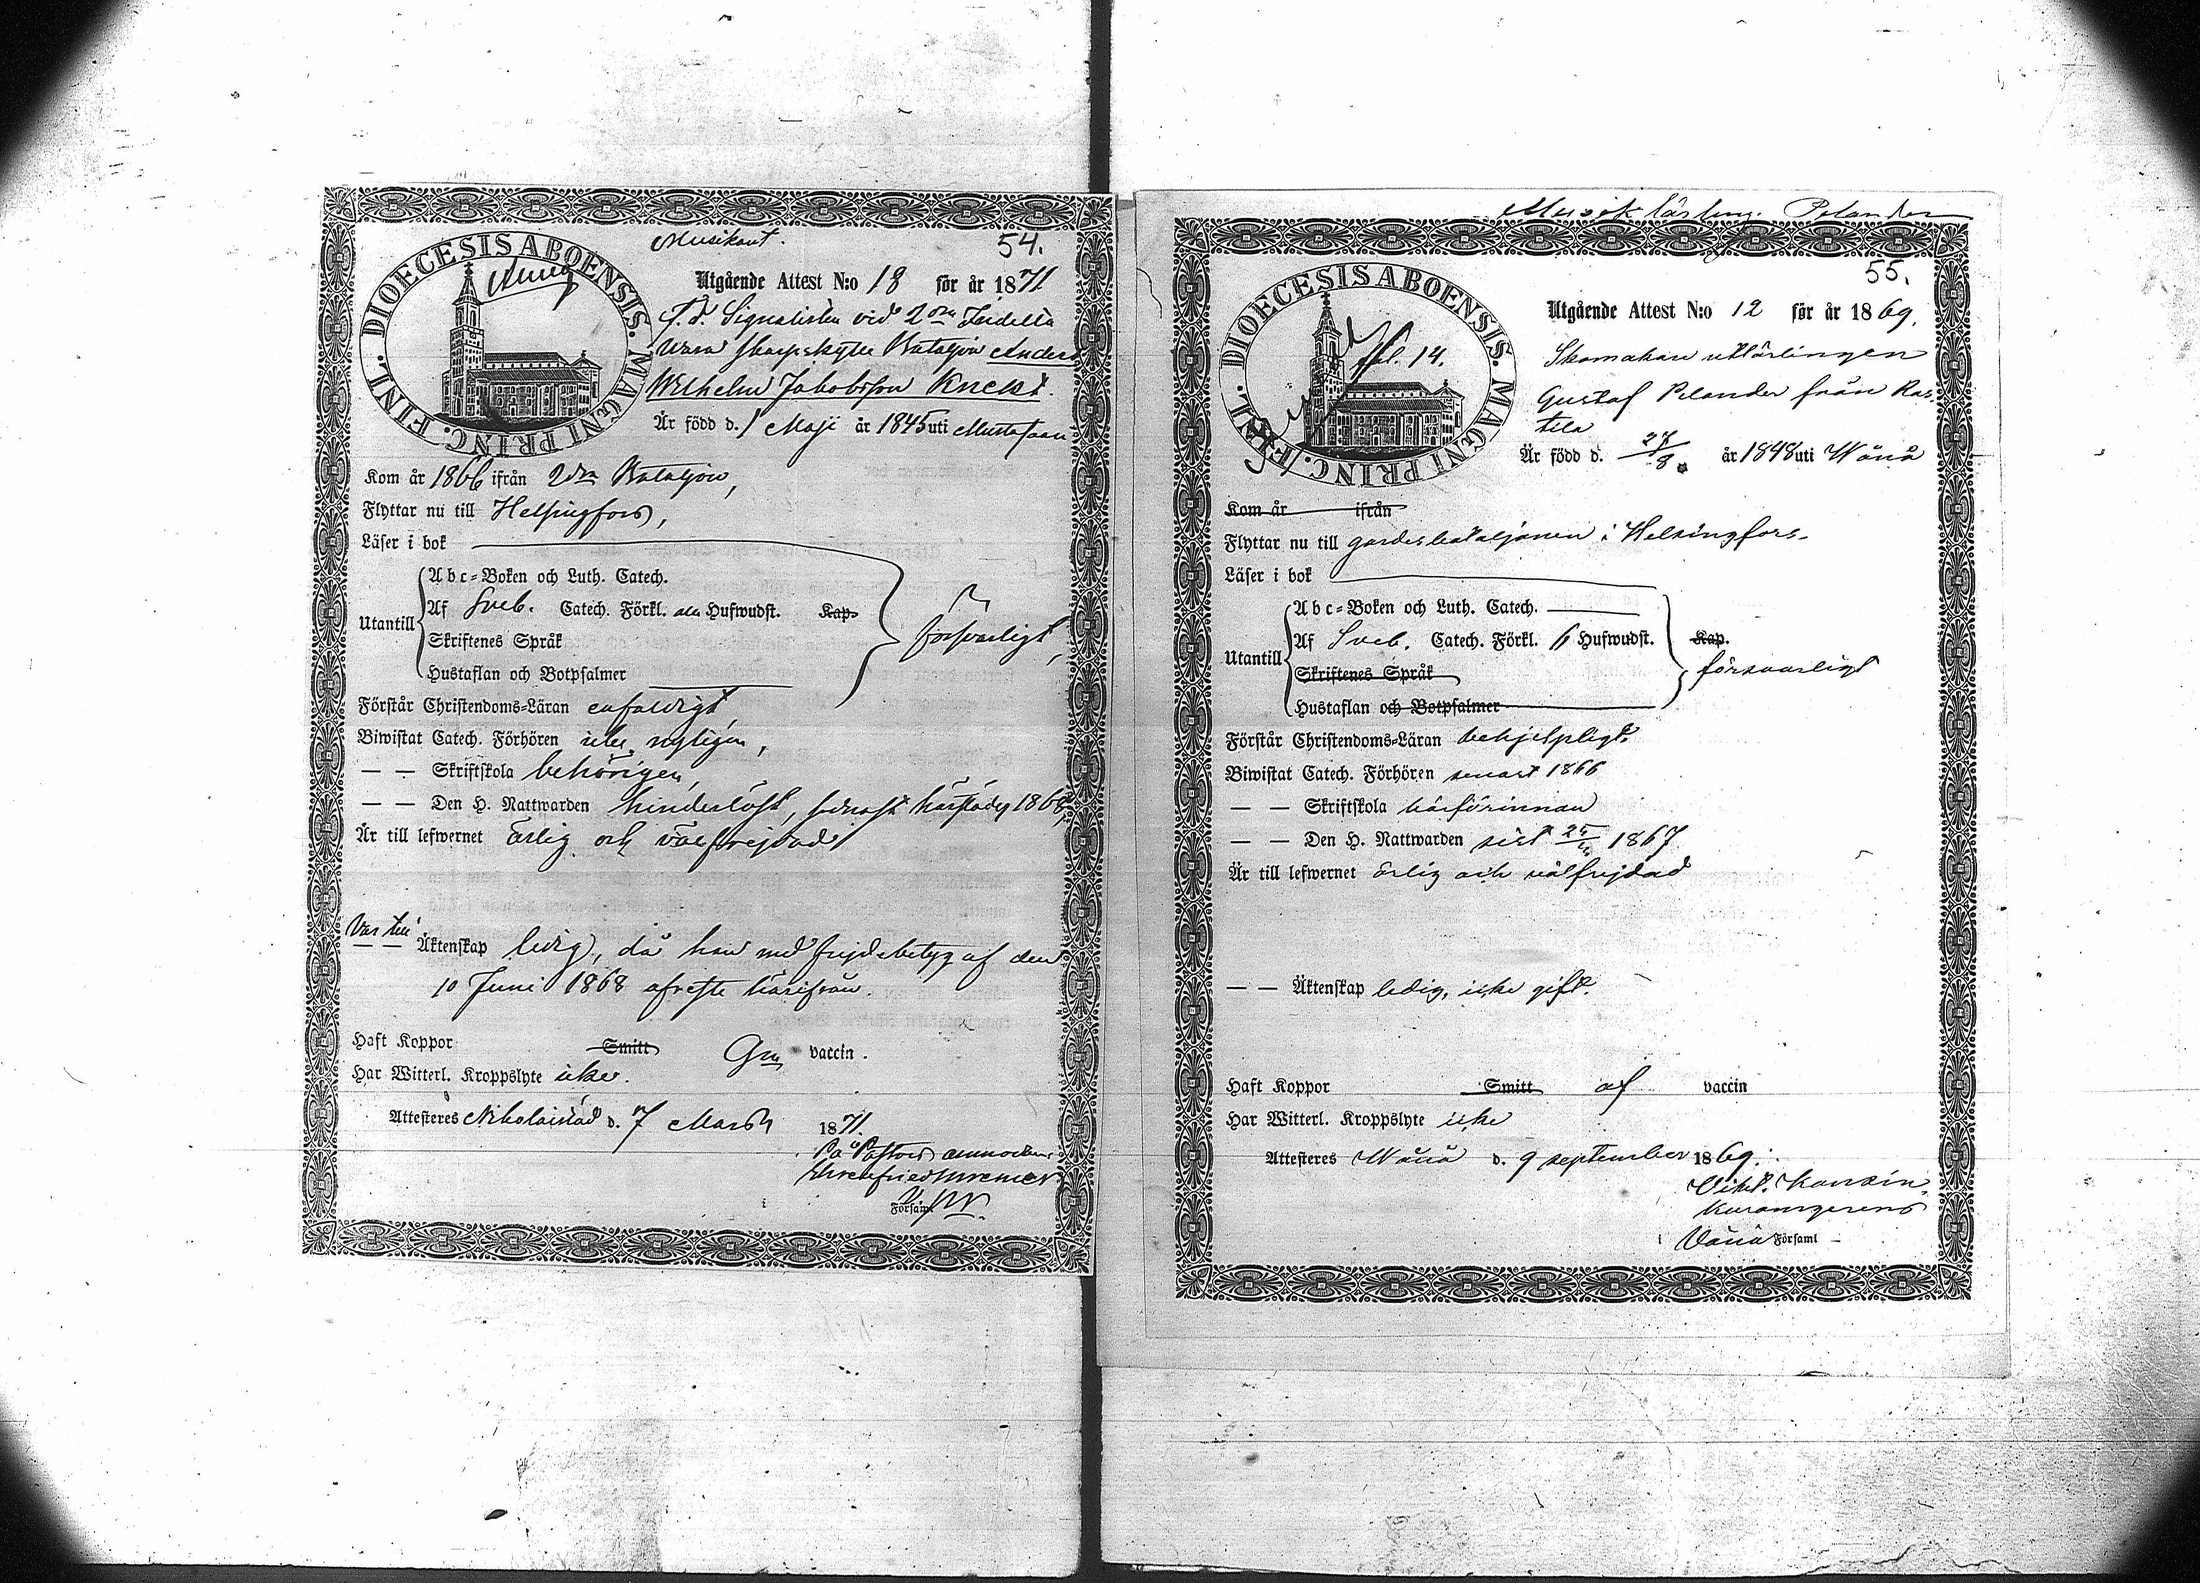 Musikant.
54.
DIOECESIS ABOENSIS. MAGNI PRINC. FINL.
Utgående Attest N:o 18 för år 1871
F. d. Signalisten vid 2dra Indelta
Wasa Skarpskytte Bataljon Anders
Wilhelm Jakobsson Knekt.
Är född d. 1 Maji år 1845 uti Mustasaari
Kom år 1866 ifrån 2dra Bataljon,
Flyttar nu till Helsingfors,
Läser i bok
Abc-Boken och Luth. Catech.
Utantill
Af Sveb. Catech. Förkl. alla Hufwudst. Kap.
försvarligt,
Skriftenes Språk
Hustaflan och Botpsalmer
Förstår Christendoms-Läran enfaldigt,
Biwistat Catech. Förhören icke
— — Skriftskola behörigen,
— — Den H. Nattwarden hinderlöst, senast härstädes
Är till lefwernet ärlig och välfrejdad
Var till
— — Äktenskap ledig, då han med frejdebetyg af den
10 Juni 1868 afreste härifrån.
Haft Koppor Smitt Gm vaccin.
Har Witterl. Kroppslyte icke.
Attesteres Nikolaistad d. 7 Mars 1871.
På Pastors
V. P.
Församl
Musik lärling. Pelander
55.
DIOECESIS ABOENSIS. MAGNI PRINC. FINL.
fol. 14.
Utgående Attest N:o 12 för år 1869.
Skomakare utlärlingen
Gustaf Pelander från Ras-
tila
Är född d. 27/8 år 1848 uti Wånå
Kom år ifrån
Flyttar nu till gardesbataljonen i Helsingfors.
Läser i bok
Abc-Boken och Luth. Catech.
Utantill
Af Sveb. Catech. Förkl. 6 Hufwudst. Kap.
försvarligt
Skriftenes Språk
Hustaflan och Botpsalmer
Förstår Christendoms-Läran behjelpligt.
Biwistat Catech. Förhören senast 1866
— — Skriftskola härförinnan
— — Den H. Nattwarden sist 1867
Är till lefwernet ärlig och välfrejdad
— — Äktenskap ledig, icke gift.
Haft Koppor Smitt af vaccin
Har Witterl. Kroppslyte icke
Attesteres Wånå d. 9 september 1869.
Vikt.
i Vånå Församl